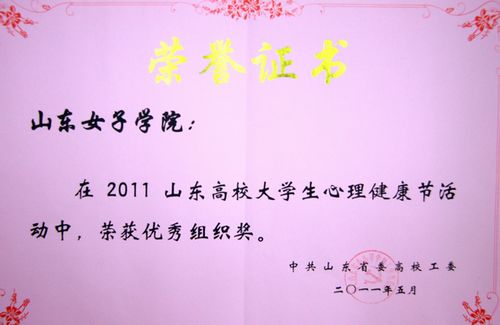 荣誉证书
山东女子学院：
在 2011 山东高校大学生心理健康节活
动中，荣获优秀组织奖。
中共山东省委高校工委
二〇一一年五月